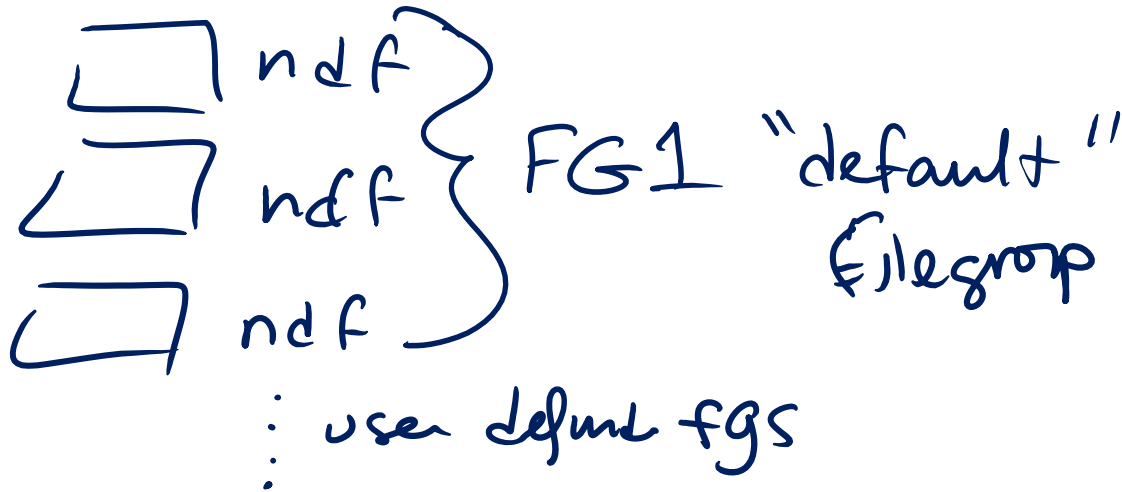 ndf
ndf
ndf
FG1 "default"
filegrop
user defund fgs